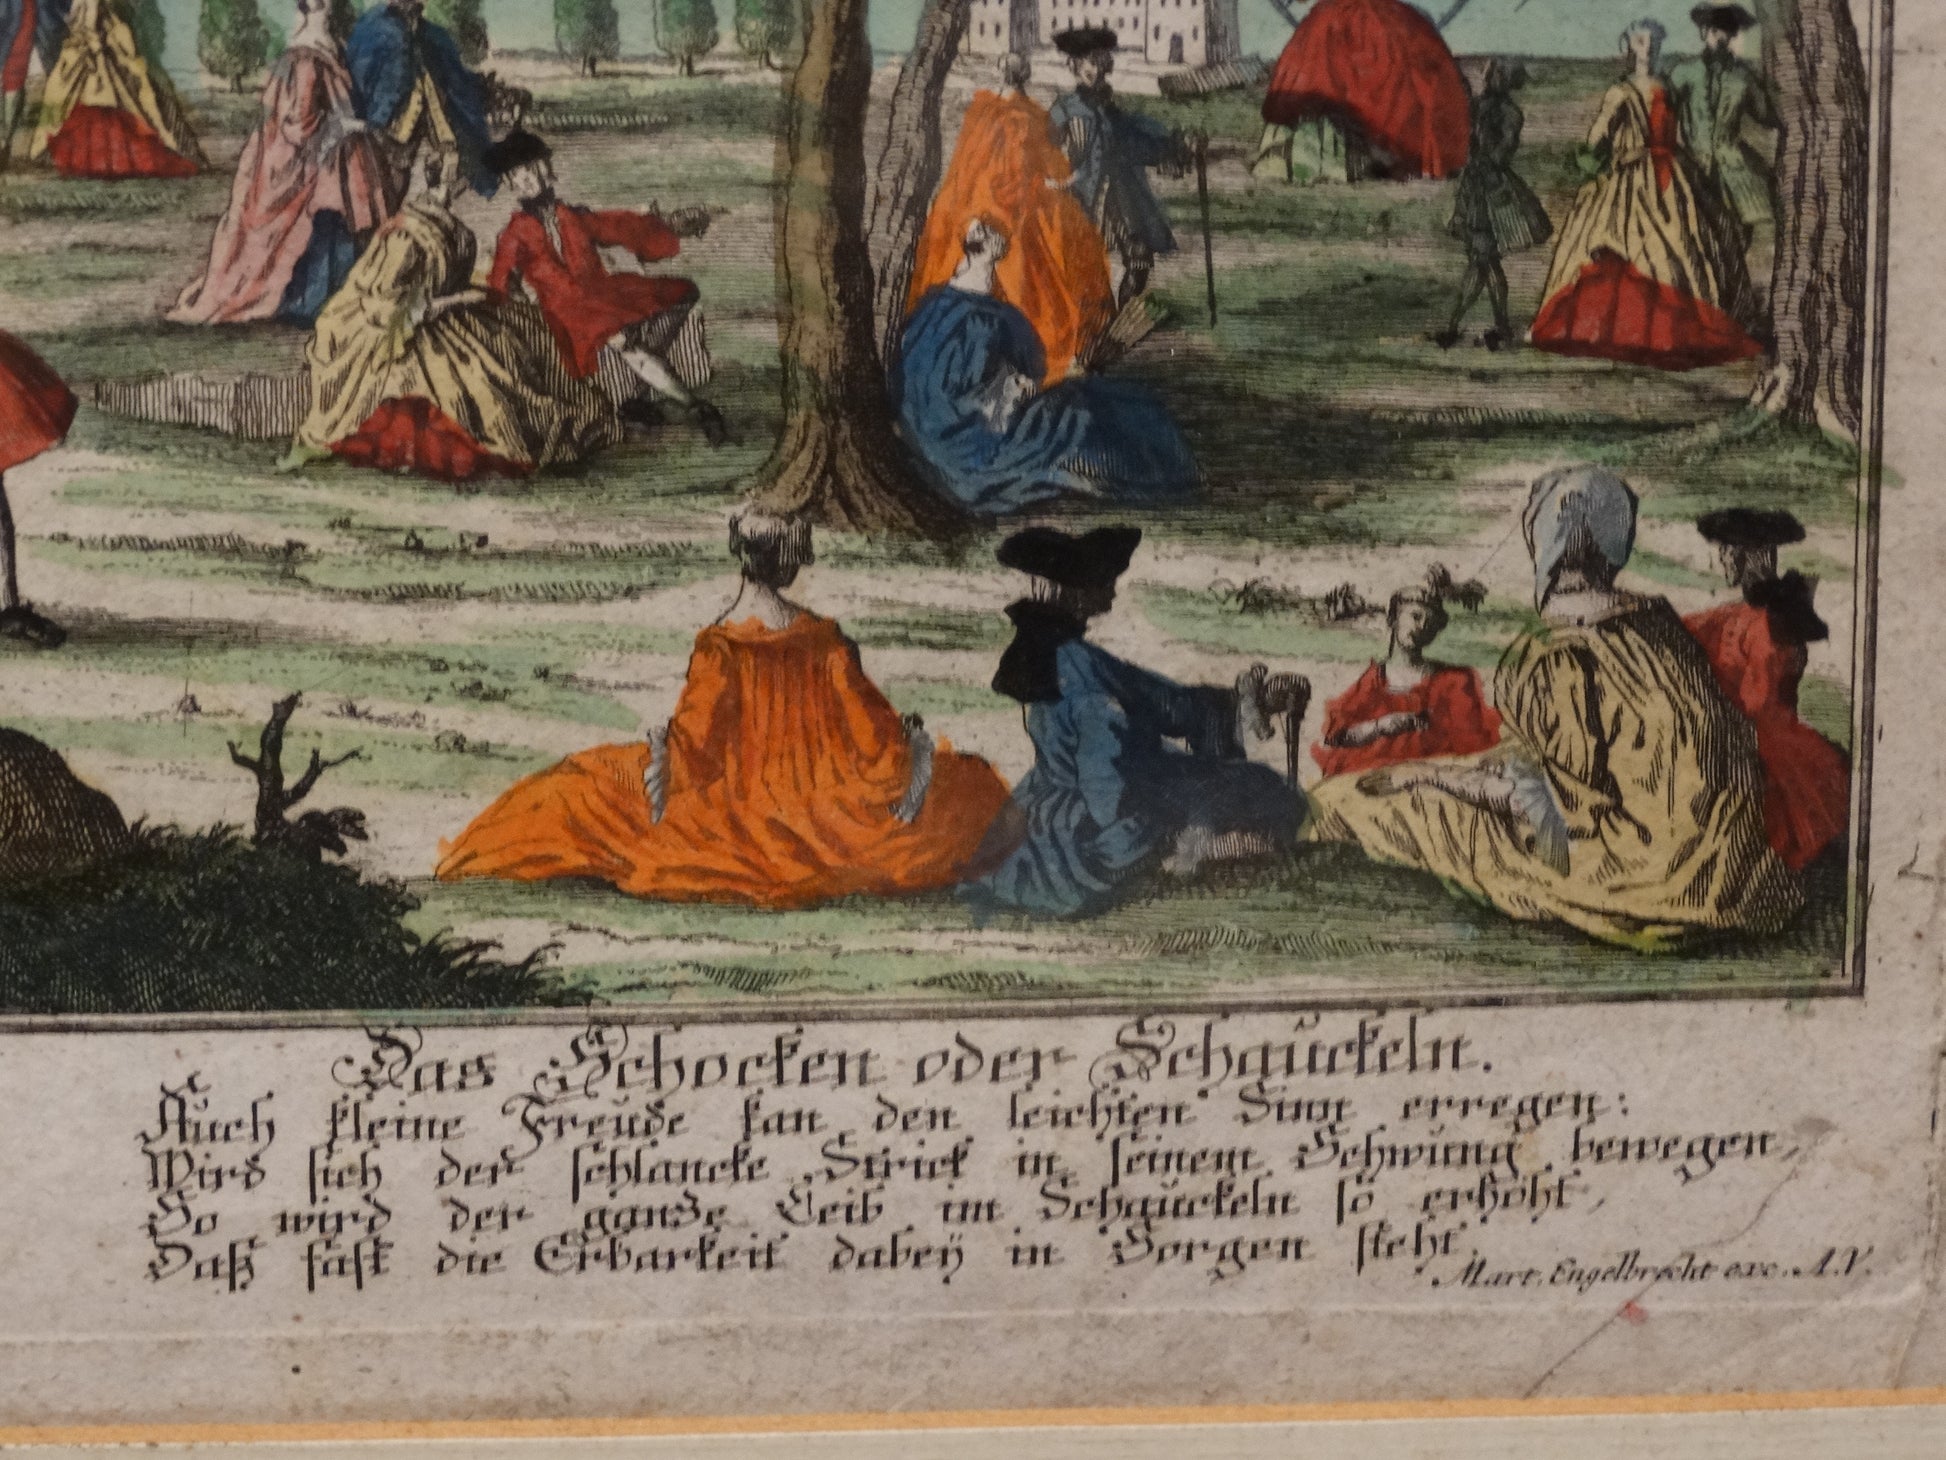 Das Schocken oder Schauckeln.
Auch kleine Freude kan den leichten Sinn erregen:
Wird sich der schlancke Strick in seinem Schwung bewegen,
So wird der ganze Leib im Schauckeln so erhöht,
Daß fast die Erbarkeit dabeÿ in Sorgen steht.
Mart. Engelbrecht exc. A.V.